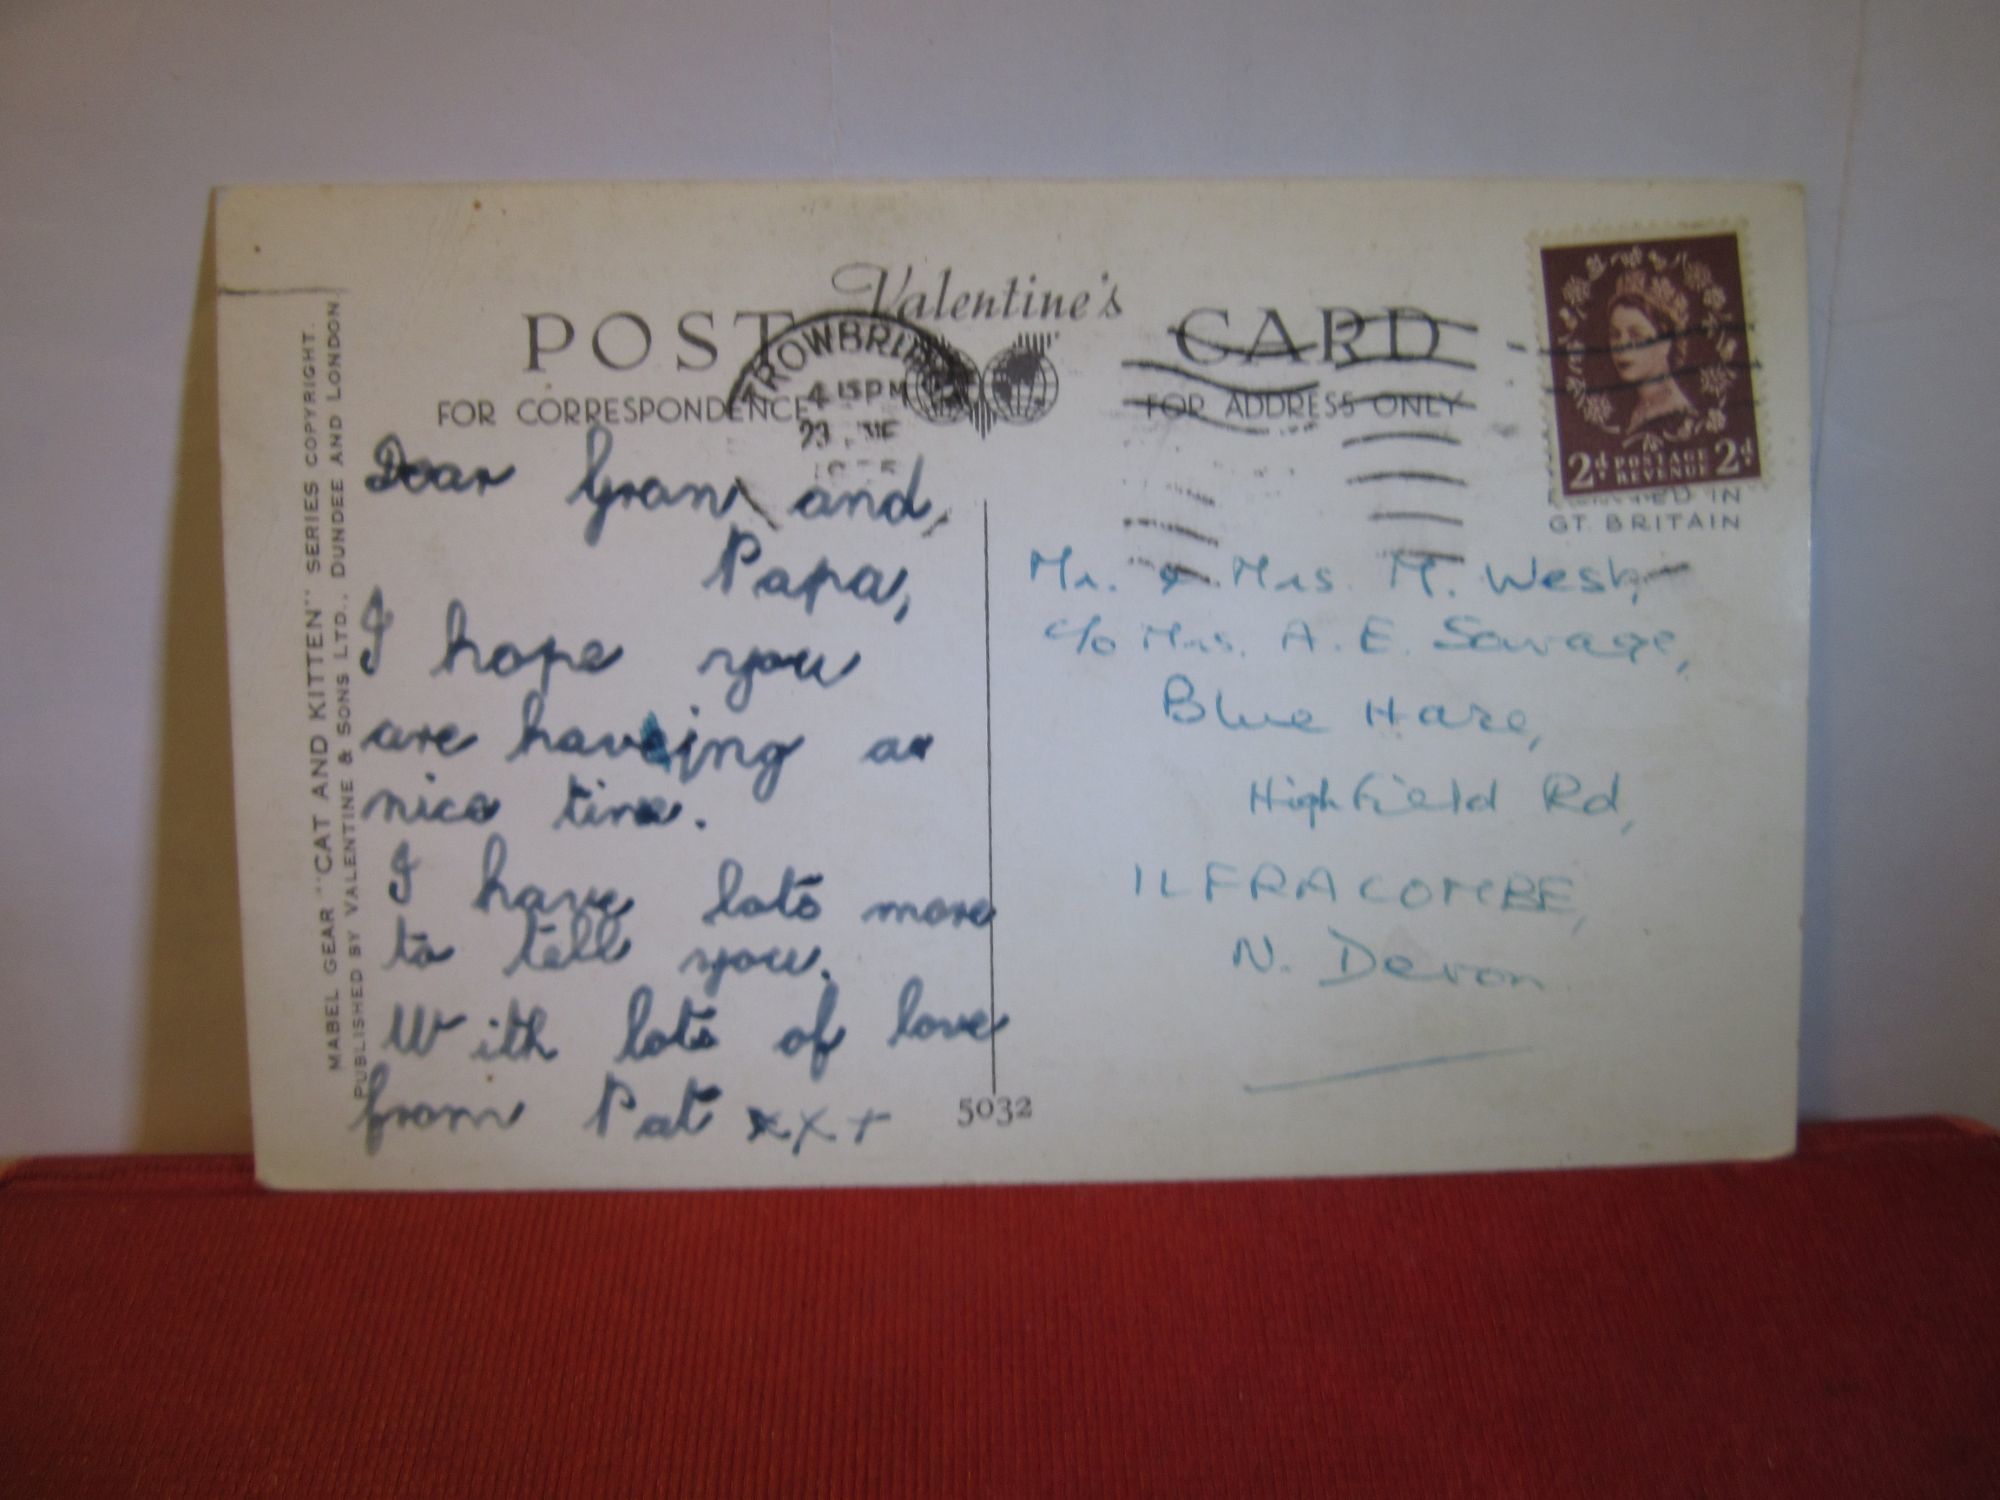 Valentine's
POST CARD
FOR CORRESPONDENCE
FOR ADDRESS ONLY
TROWBRIDGE
4 15 PM
23
2d POSTAGE REVENUE 2d
IN
GT. BRITAIN
MABEL GEAR "CAT AND KITTEN" SERIES COPYRIGHT.
PUBLISHED BY VALENTINE & SONS LTD., DUNDEE AND LONDON
Dear Gran and,
Papa,
I hope you
are haveing a
nice time.
I have lots more
to tell you.
With lots of love
from Pat xx+
5032
Mr. & Mrs. M. West,
c/o Mrs. A. E. Savage,
Blue Haze,
Highfield Rd,
ILFRACOMBE,
N. Devon